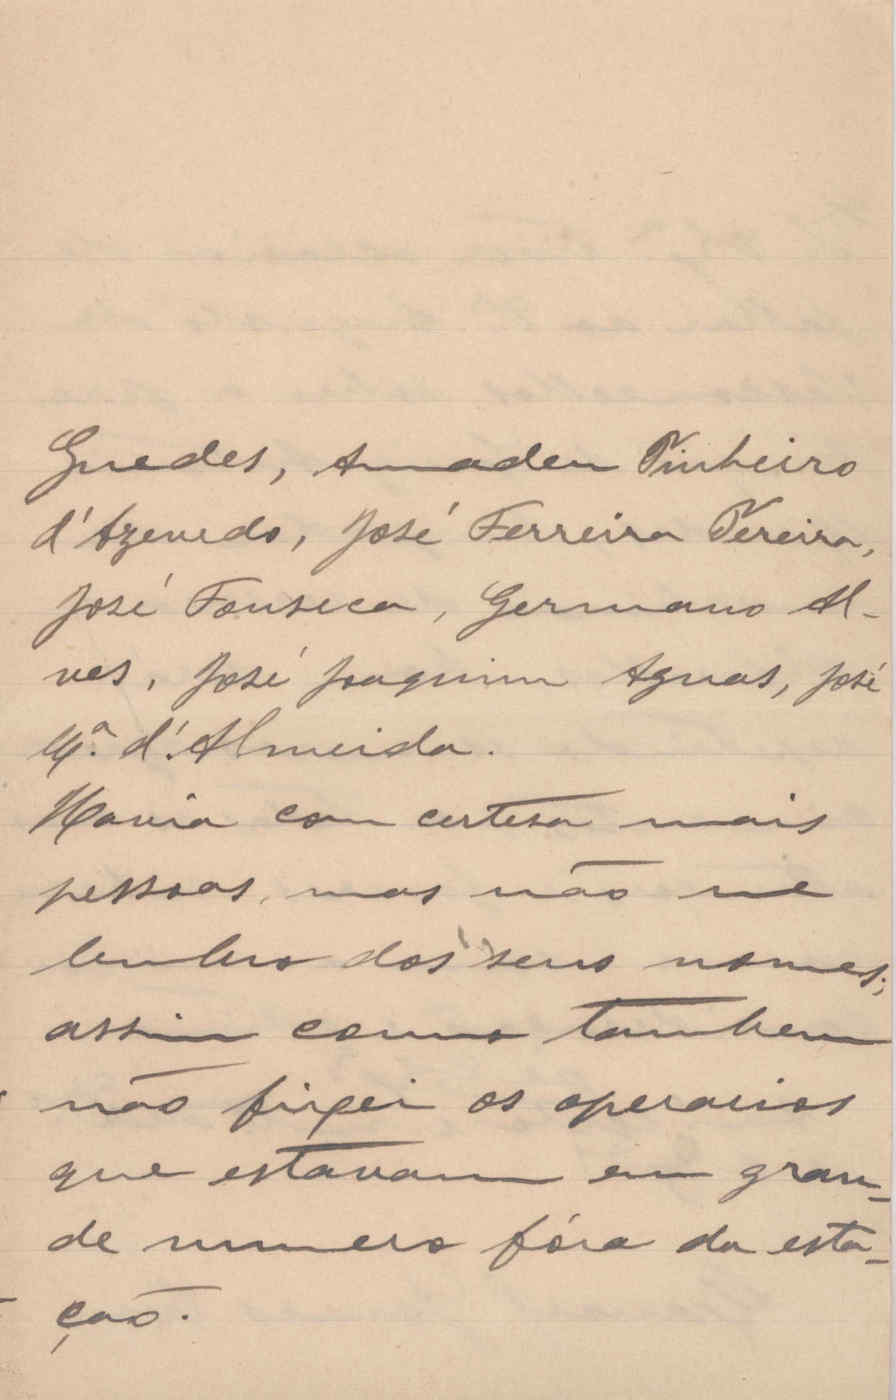 Guedes, Amadeu Pinheiro
d'Azevedo, José Ferreira Pereira,
José Fonseca, Germano Al-
ves, José Joaquim Aguas, José
Mª. d'Almeida.
Havia com certesa mais
pessoas, mas não me
lembro dos seus nomes;
assim como tambem
não fixei os operarios
que estavam em gran-
de numero fóra da esta-
ção.